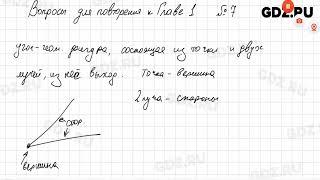 Вопросы для повторения к Главе 1 №7
GDZ.PU
угол-геом фигура, состоящая из точки и двух
лучей, из неё выход. Точка - вершина
2 луча - стороны
стор
вершина
GDZ.PU